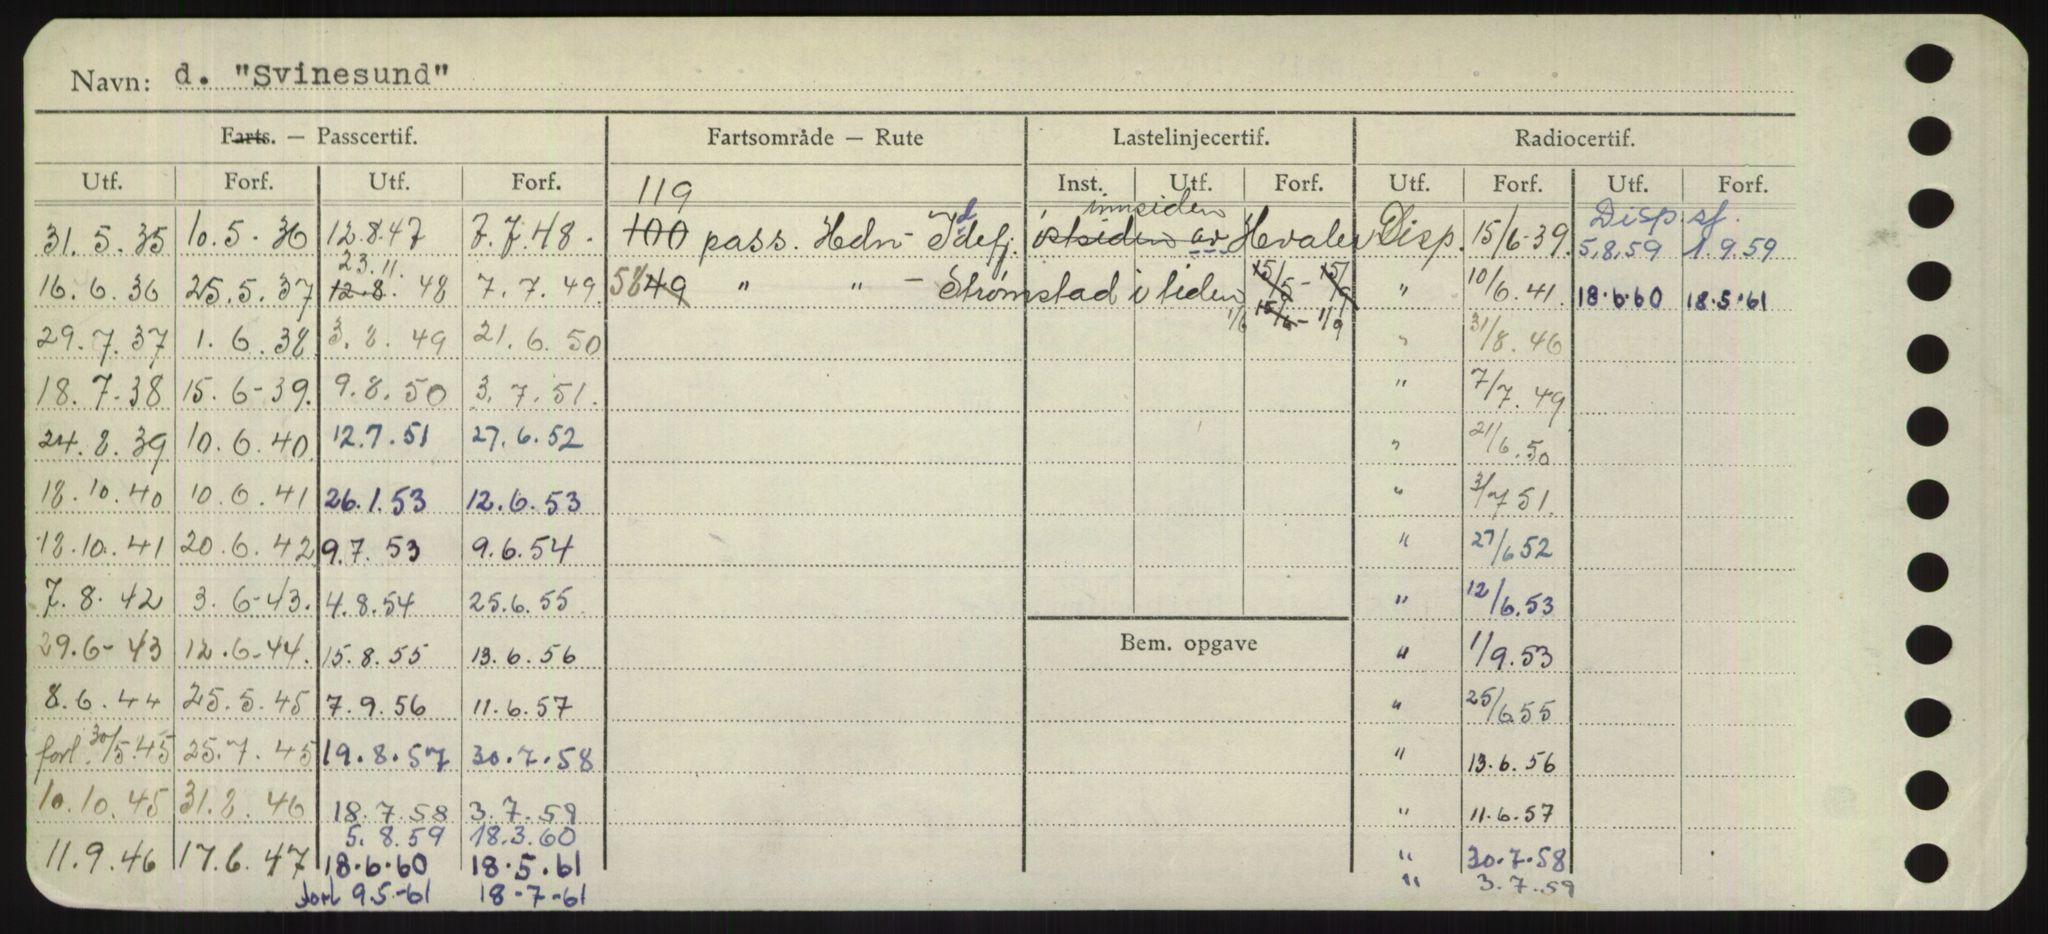 Navn: d. "Svinesund"
Farts. — Passcertif. Fartsområde — Rute Lastelinjecertif. Radiocertif.
Utf. Forf. Utf. Forf. 119 Inst. Utf. Forf. Utf. Forf. Utf. Forf.
innsiden Disp. sf.
31.5.35 10.5.36 12.8.47 7.7.48. 100 pass. Hdn - Idefj. østsiden av Hvaler Disp. 15/6-39. 5.8.59 1.9.59
23.11.
16.6.36 25.5.37 12.8. 48 7.7.49 58 49 " " - Strømstad i tiden 15/5 - 15/9 " 10/6.41. 18.6.60 18.5.61
1/6 15/6 - 1/9
29.7.37 1.6.38 3.8.49 21.6.50 " 31/8.46
18.7.38 15.6-39. 9.8.50 3.7.51. " 7/7.49
24.8.39 10.6.40 12.7.51 27.6.52 " 21/6.50
18.10.40 10.6.41 26.1.53 12.6.53 " 3/7 51.
18.10.41 20.6.42 9.7.53 9.6.54 " 27/6 52
7.8.42 3.6-43. 4.8.54 25.6.55 " 12/6.53
29.6-43 12.6-44. 15.8.55 13.6.56 Bem. opgave " 1/9.53
8.6.44 25.5.45 7.9.56 11.6.57 " 25/6 55
forl. 30/5.45 25.7.45 19.8.57 30.7.58 " 13.6.56
10.10.45 31.8.46 18.7.58 3.7.59 " 11.6.57
5.8.59 18.3.60
11.9.46 17.6.47 18.6.60 18.5.61 " 30.7.58
forl 9.5-61 18-7-61 " 3.7.59